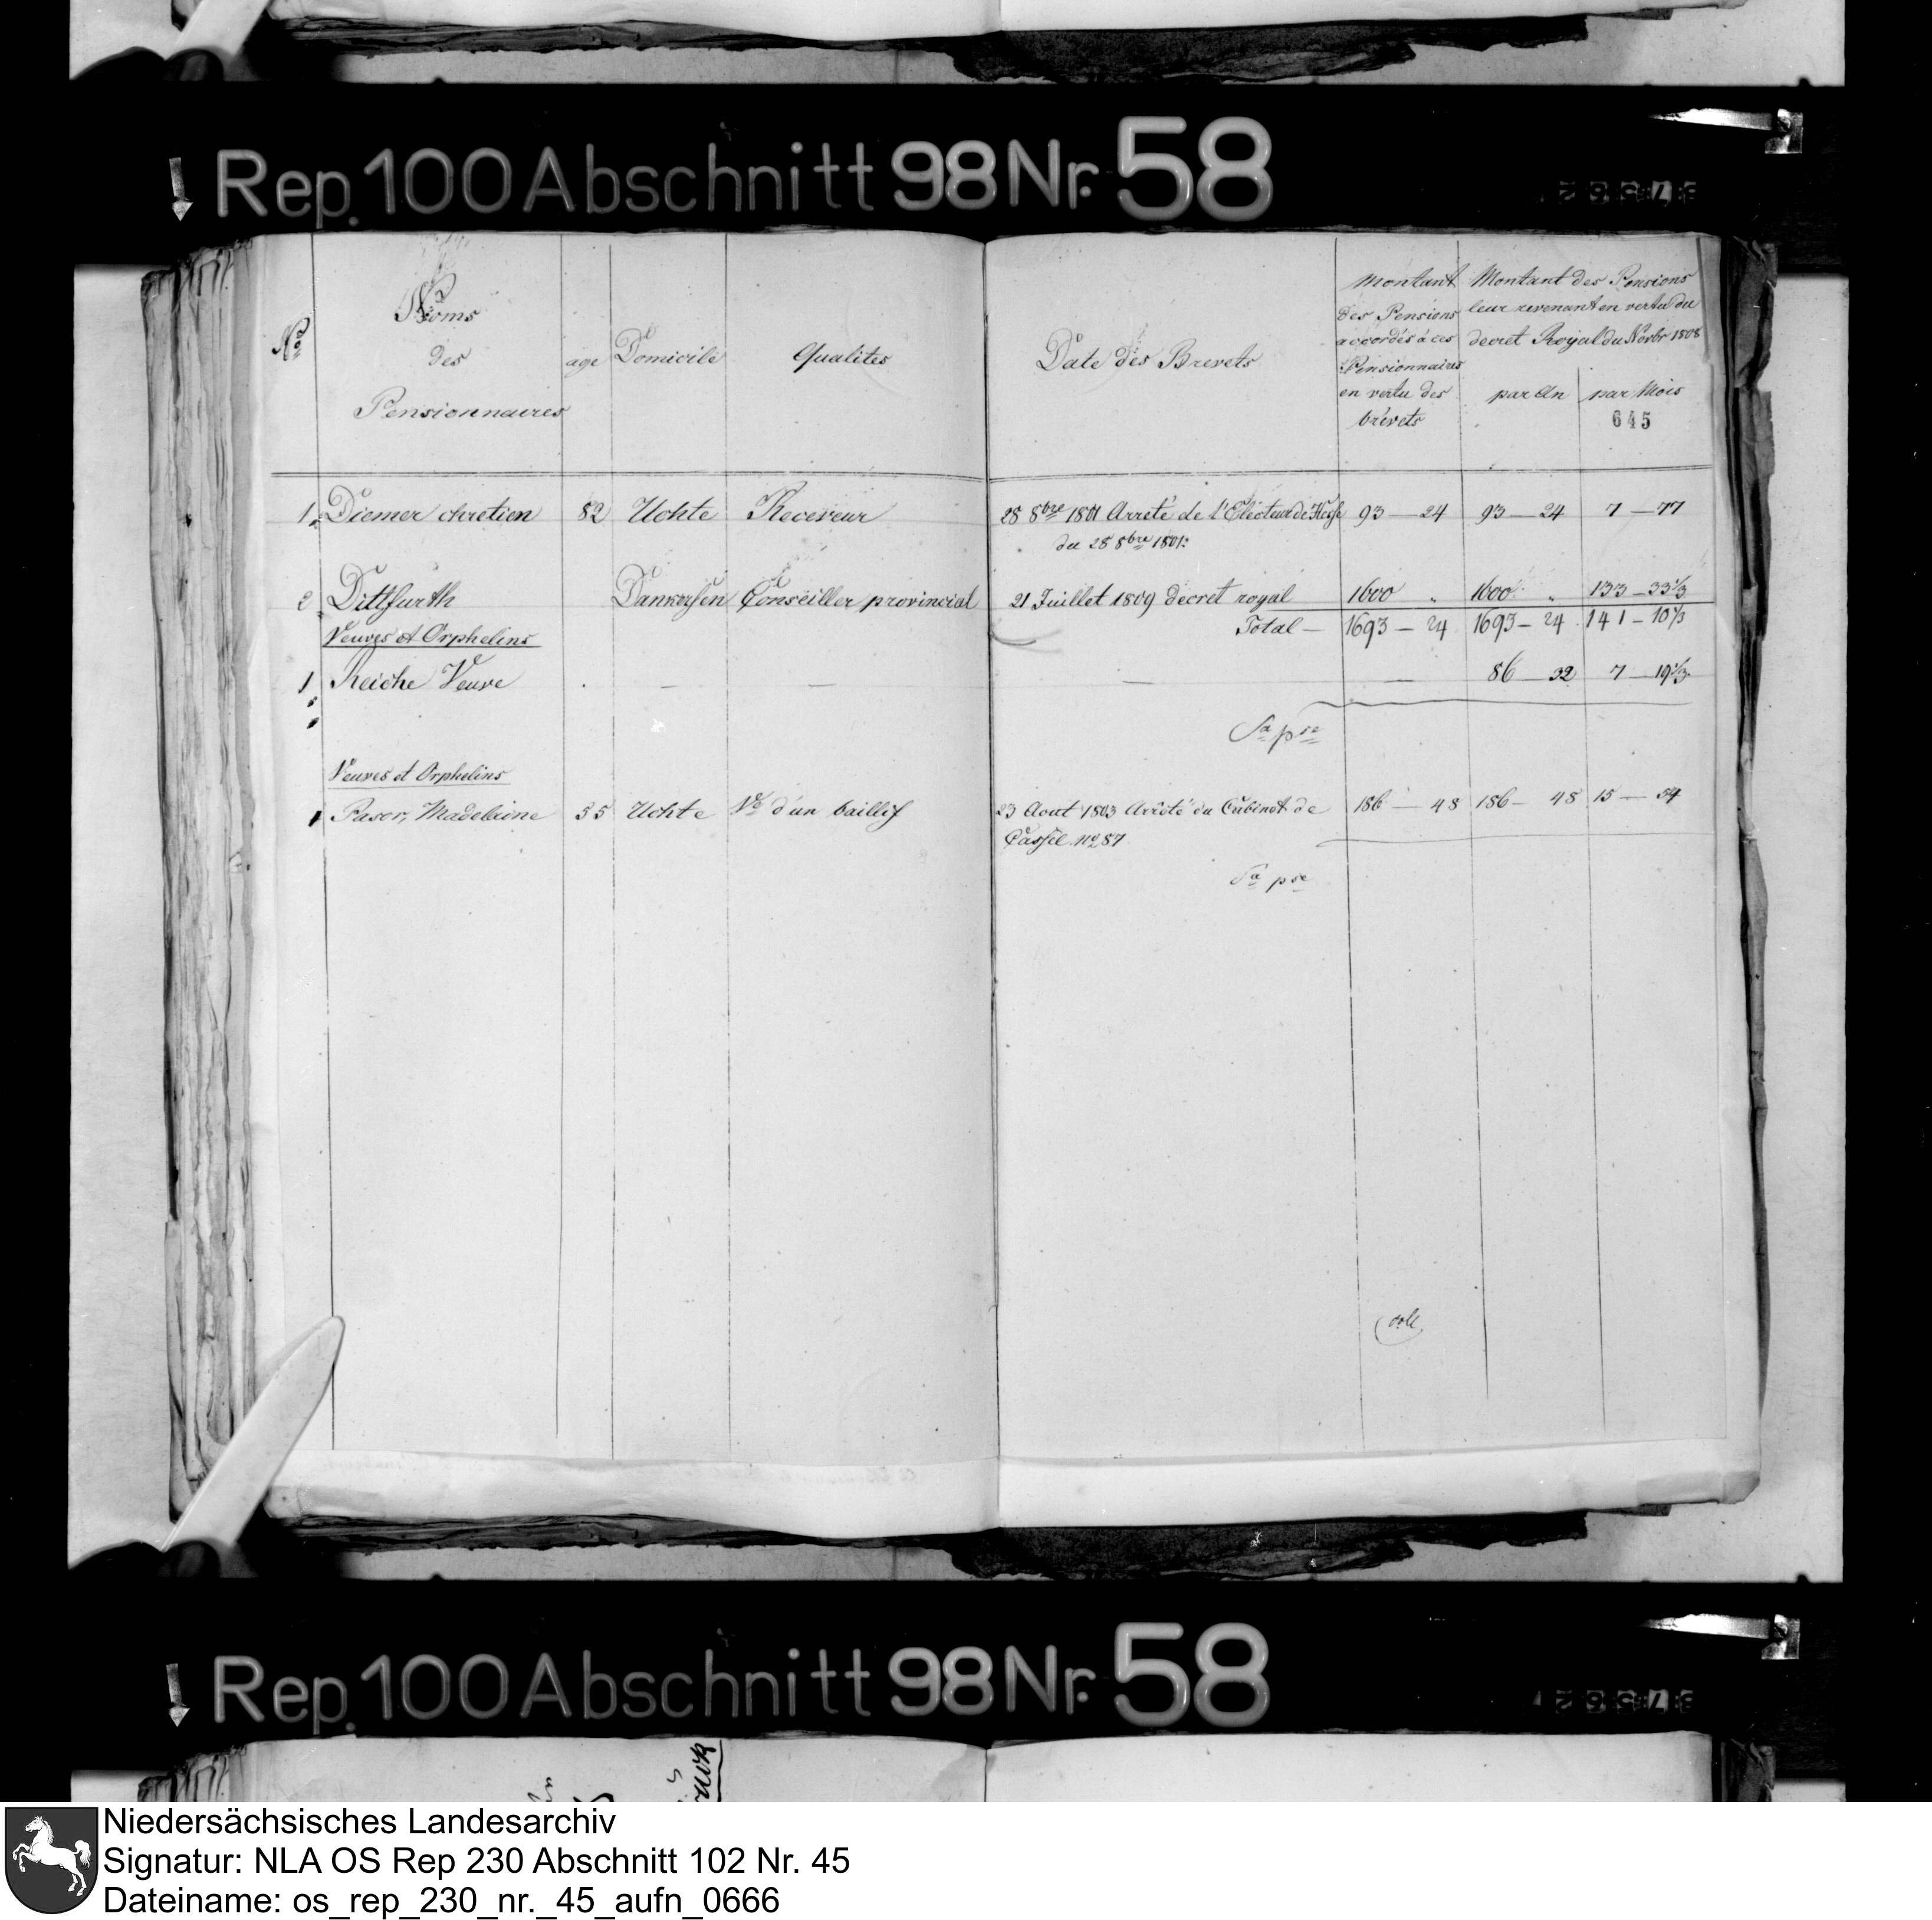 Rep. 100 Abschnitt 98 Nr. 58
No
Noms
des
Pensionnaires
age
Domicile
Qualites
Date des Brevets
Montant
des Pensions
accordés à ces
Pensionnaires
en vertu des
brévets
Montant des Pensions
leur revenant en vertu du
decret Royal du Novbr 1808
par An
par Mois
645
1. Diemer chretien 82 Uchte Receveur 28 8bre 1801 Arreté de l'Electeur de Hesse 93 — 24 93 — 24 7 — 77
du 28 8bre 1801:
2 Dittfurth Dankersen Conseiller provincial 21 Juillet 1809 decret royal 1600 „ 1600 „ 133 — 33 1/3
Veuves et Orphelins Total — 1693 — 24 1693 — 24 141 — 10 1/3
1 Reiche Veuve — — — — 86 — 32 7 — 19 1/3
Sa pse
Veuves et Orphelins
1 Paser, Madelaine 55 Uchte Ve d'un baillif 23 Aout 1803 Arrêté du Cabinet de 186 — 48 186 — 48 15 — 54
Cassel No 87
Sa pse
Rep. 100 Abschnitt 98 Nr. 58
Niedersächsisches Landesarchiv
Signatur: NLA OS Rep 230 Abschnitt 102 Nr. 45
Dateiname: os_rep_230_nr._45_aufn_0666